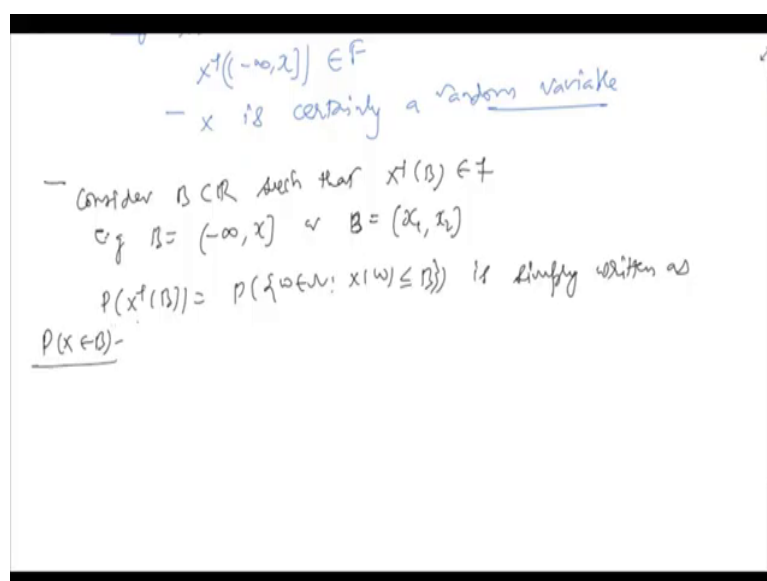 X⁻¹((-∞, x]) ∈ F
- X is certainly a random variable
- Consider B ⊂ R such that X⁻¹(B) ∈ F
e.g B = (-∞, x] or B = (x₁, x₂]
P(X⁻¹(B)) = P({ω ∈ Ω : X(ω) ≤ B}) is simply written as
P(X ∈ B) -